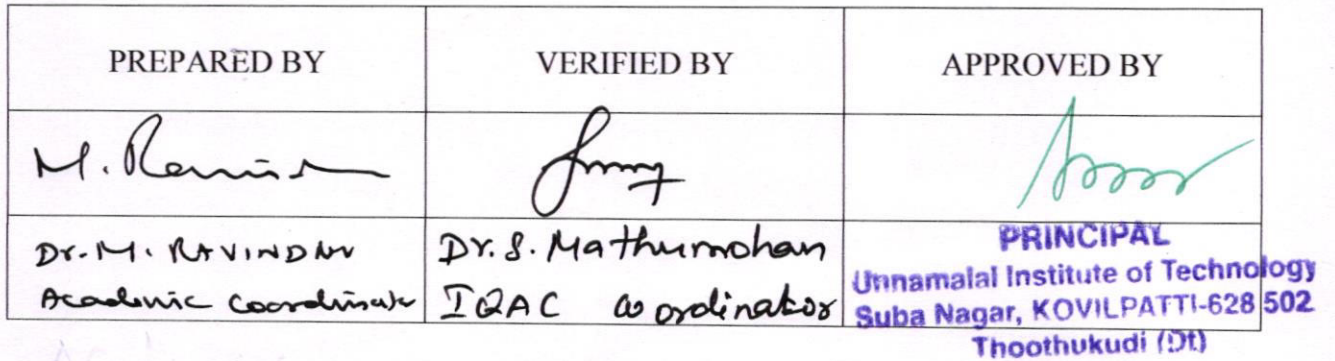 PREPARED BY
VERIFIED BY
APPROVED BY
M. Ravin
Dr. M. RAVINDRAN
Academic Coordinator
Dr. S. Mathumohan
IQAC Coordinator
PRINCIPAL
Unnamalai Institute of Technology
Suba Nagar, KOVILPATTI-628 502
Thoothukudi (Dt)